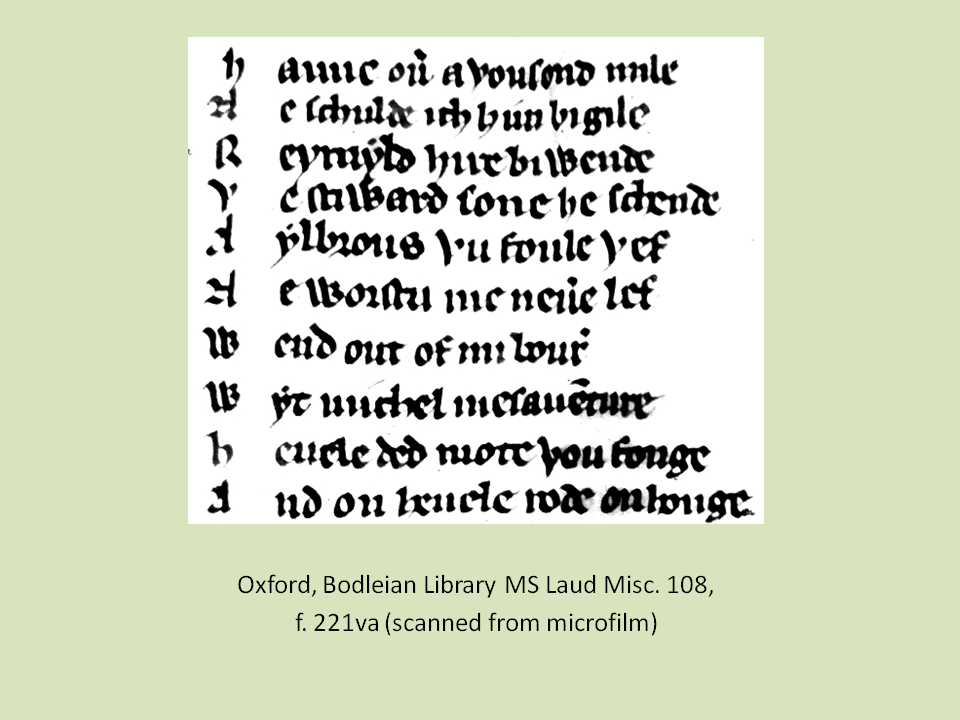 h auue oñ a þousond mile
N e schulde ich him bigile
R eymyld hire biwende
Þ e stiward sone he schende
A ylbrous þu foule þef
N e worstu me neu'e lef
W end out of mi bour'
W yt muchel mesauēture
h euele ded mote þou fonge
A nd on heuele rode onhonge
Oxford, Bodleian Library MS Laud Misc. 108,
f. 221va (scanned from microfilm)